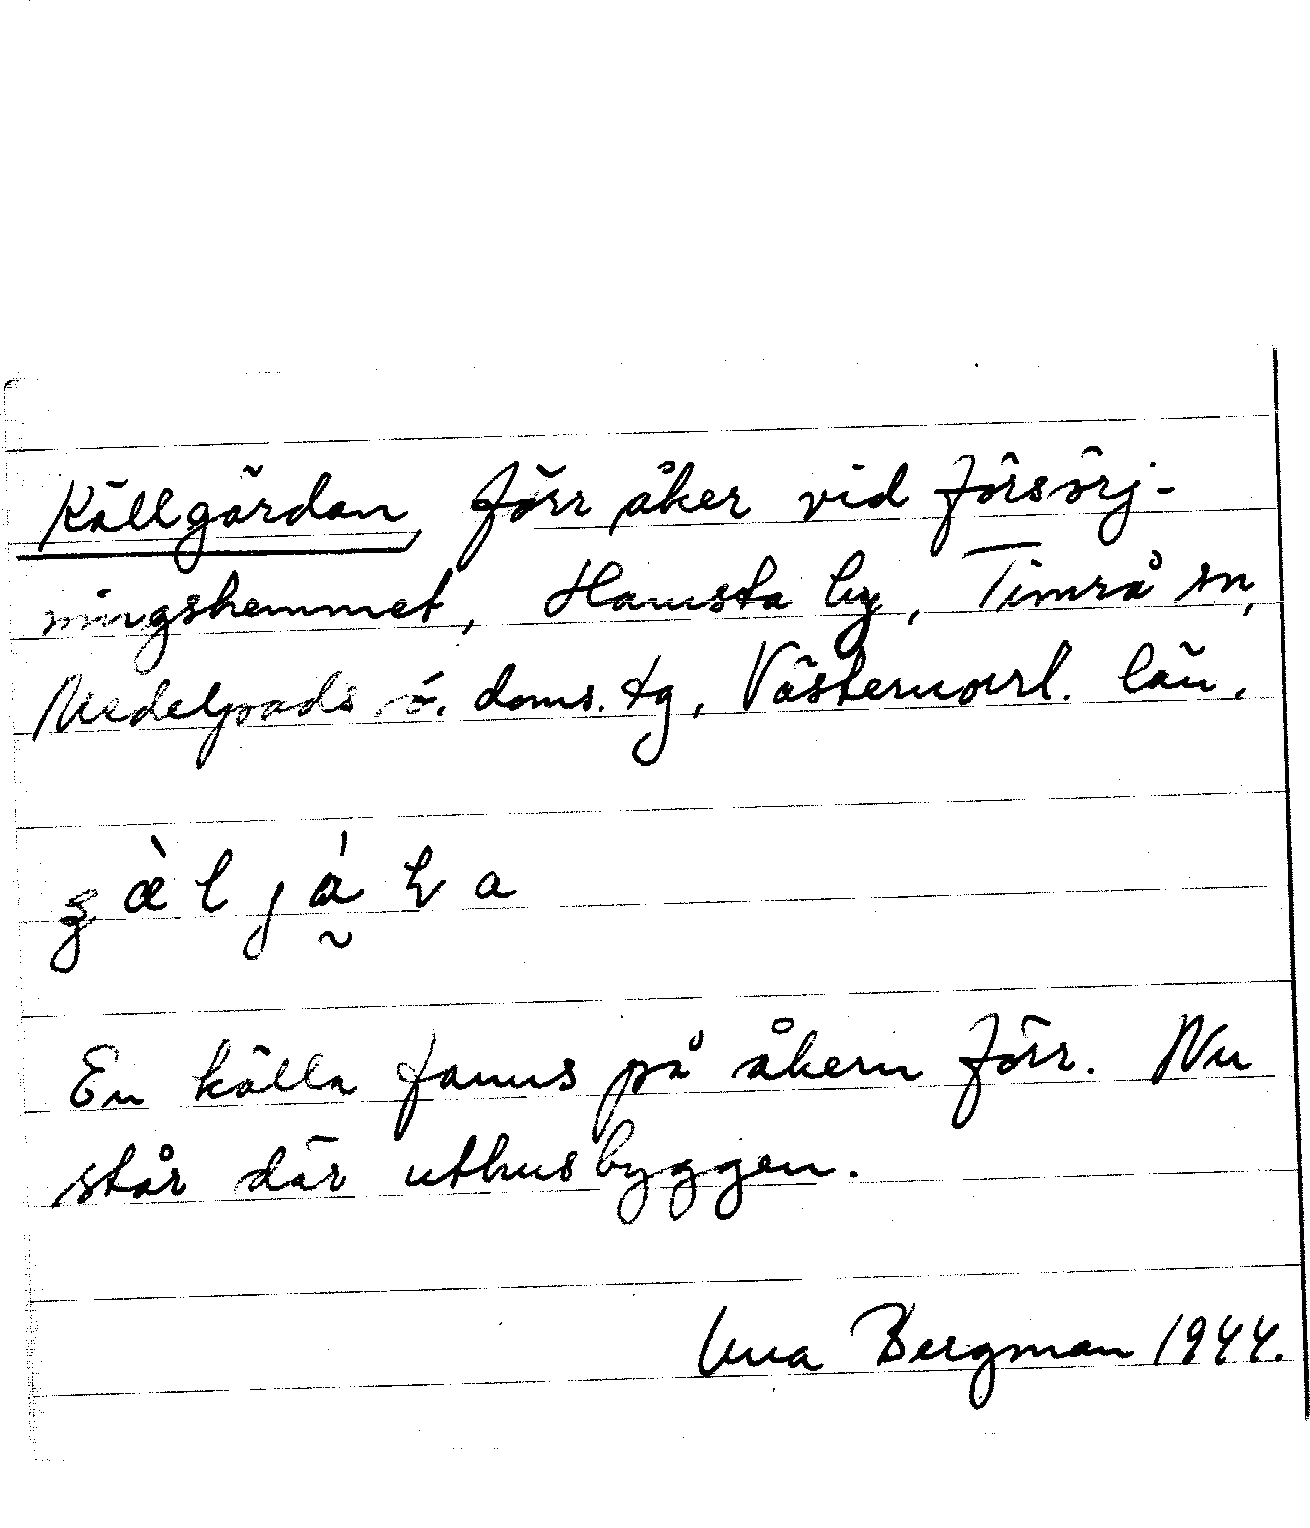 Källgärdan, förr åker vid försörj-
ningshemmet, Hamsta by, Timrå sn,
Medelpads ö. doms. tg, Västernorrl. län.
En källa fanns på åkern förr. Nu
står där uthusbyggen.
Bergman 1944.